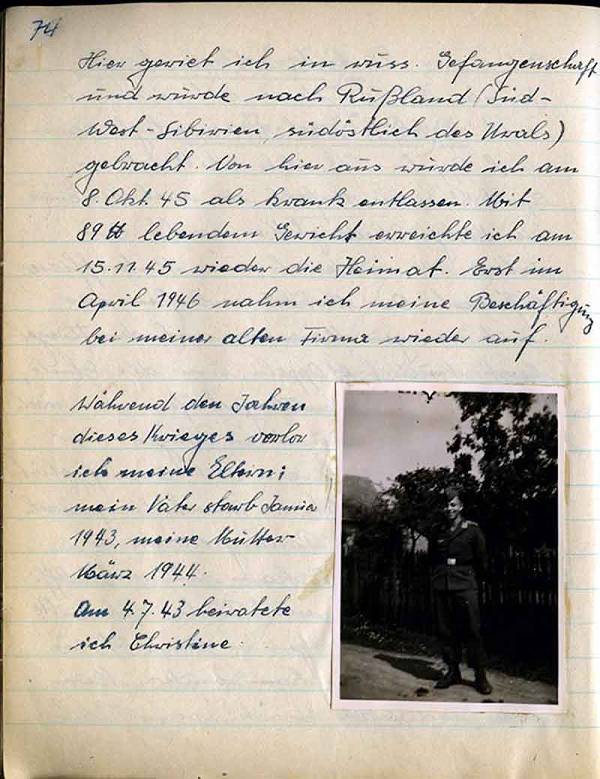 74
Hier geriet ich in russ. Gefangenschaft
und wurde nach Rußland (Süd-
West-Sibirien, südöstlich des Urals)
gebracht. Von hier aus wurde ich am
8. Okt. 45 als krank entlassen. Mit
89 ℔ lebendem Gewicht erreichte ich am
15.11.45 wieder die Heimat. Erst im
April 1946 nahm ich meine Beschäftigung
bei meiner alten Firma wieder auf.
Während den Jahren
dieses Krieges verlor
ich meine Eltern;
mein Vater starb
1943, meine Mutter
März 1944.
Am 4.7.43 heiratete
ich Christine.